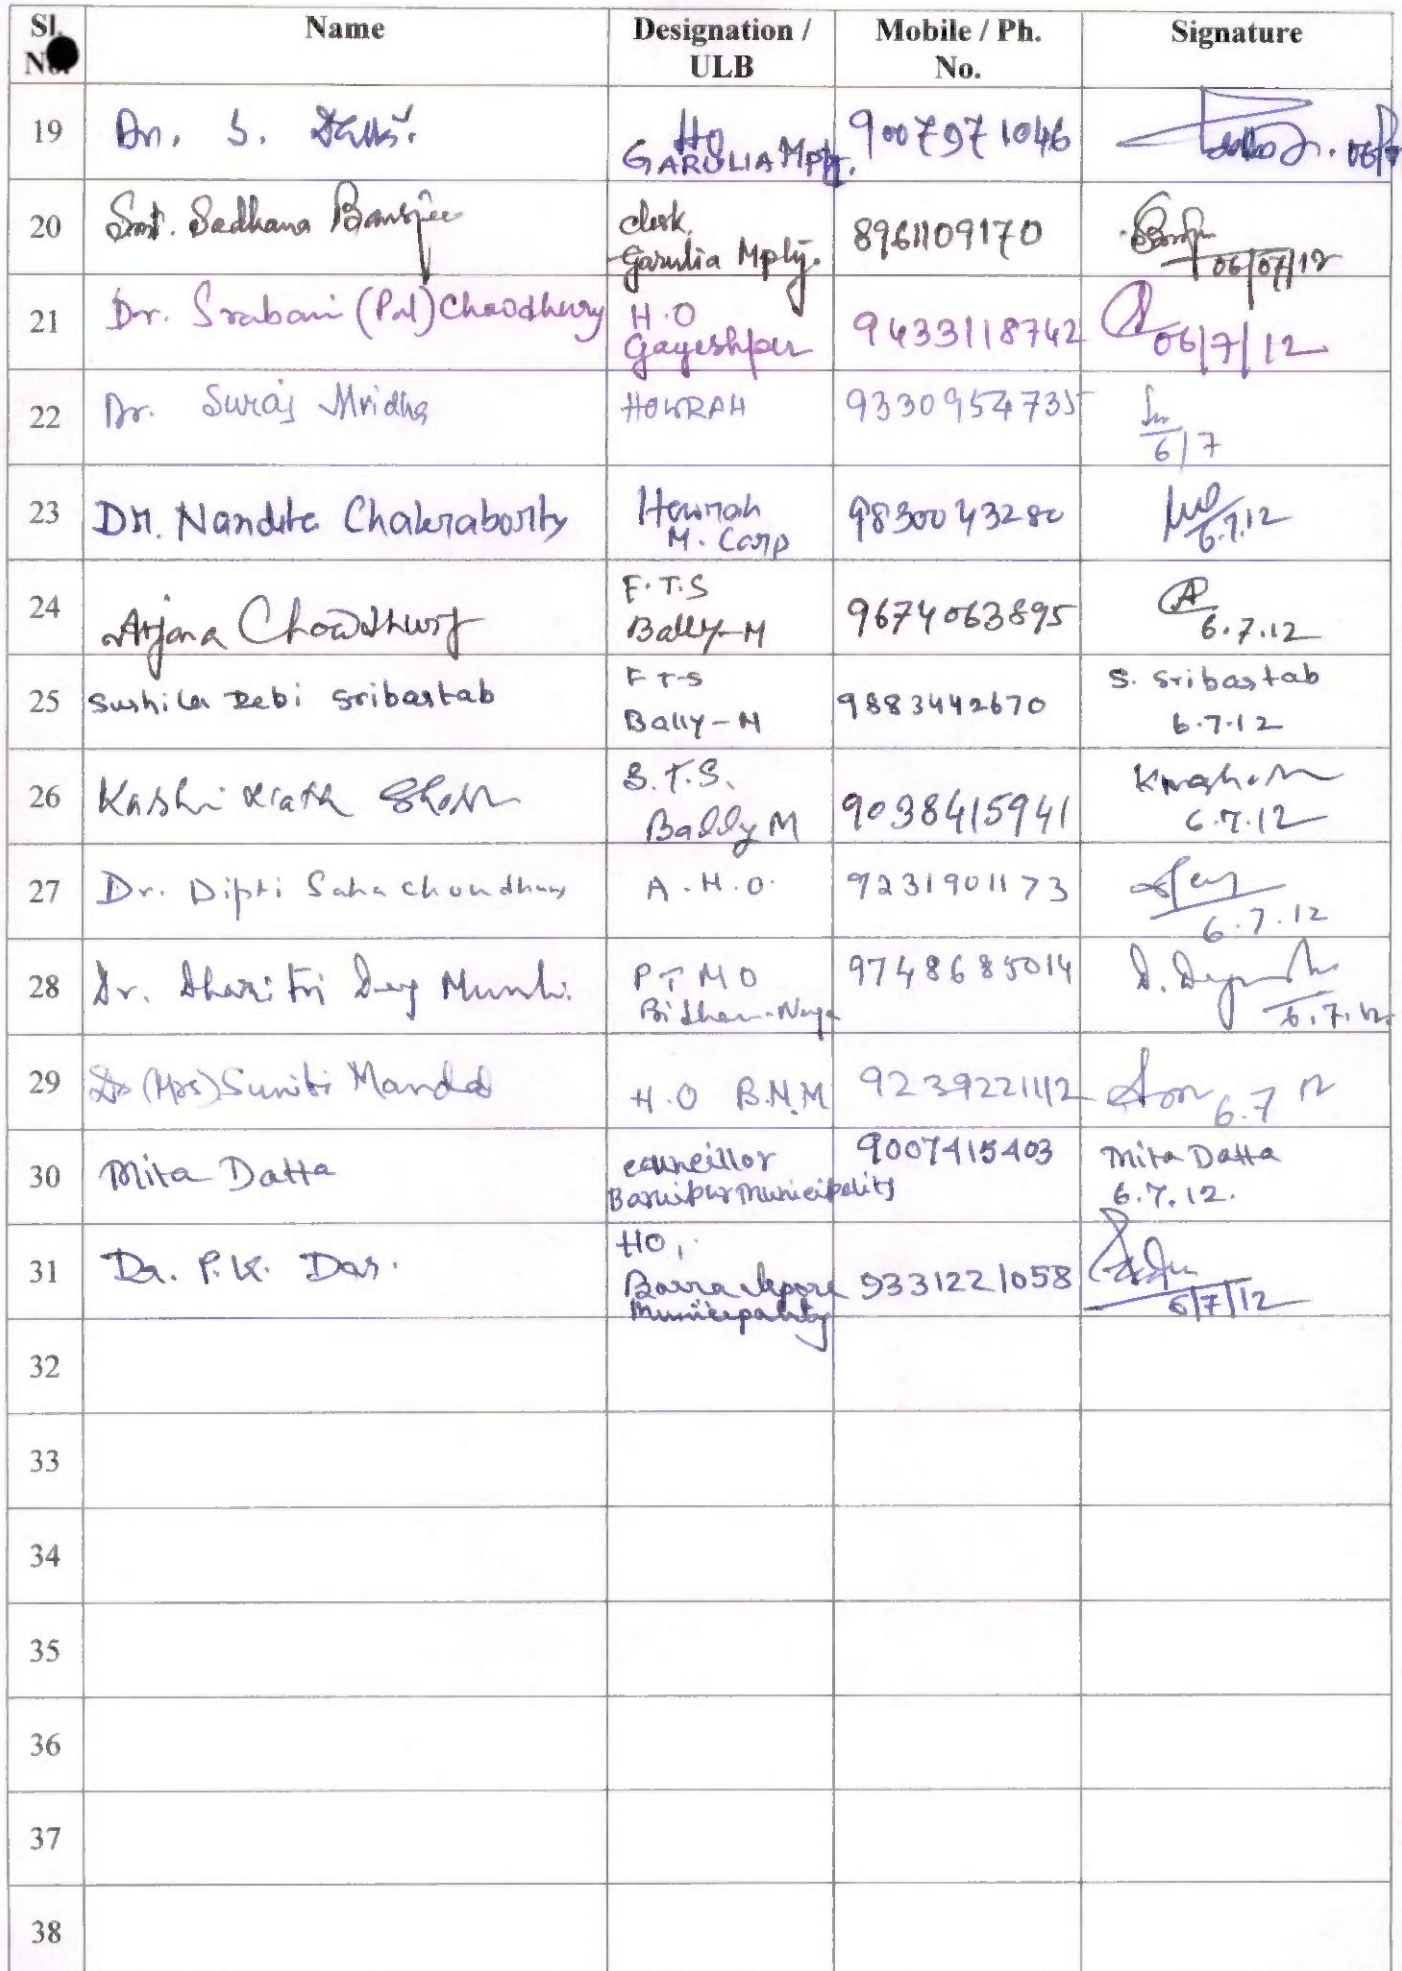 Sl. No. Name Designation / ULB Mobile / Ph. No. Signature
19 Dr. S. HO GARULIA Mplty. 9007971046
20 Smt. Sadhana Banerjee clerk, Garulia Mplty. 8961109170 06/07/12
21 Dr. Srabani (Pal) Chowdhury H.O Gayeshpur 9433118742 06/7/12
22 Dr. Suraj Mridha HOWRAH 9330954735 6/7
23 DR. Nandita Chakraborty Howrah M. Corp 9830043280 6.7.12
24 Anjana Chowdhury F.T.S Bally-M 9674063895 6.7.12
25 Sushila Debi Sribastab F T S Bally-M 9883442670 S. Sribastab 6.7.12
26 Kashi Nath Ghosh S.T.S. Bally M 9038415941 6.7.12
27 Dr. Dipti Saha Choudhury A.H.O. 9231901173 6.7.12
28 Dr. Dharitri Dey Munshi P T M O Bidhan-Nagar 9748685014 6.7.12
29 Dr (Mrs) Suniti Mandal H.O B.N.M 9239221112 6.7.12
30 Mita Datta councillor Baruipur Municipality 9007415403 Mita Datta 6.7.12.
31 Dr. P.K. Das. HO, Barrackpore Municipality 9331221058 6/7/12
32
33
34
35
36
37
38